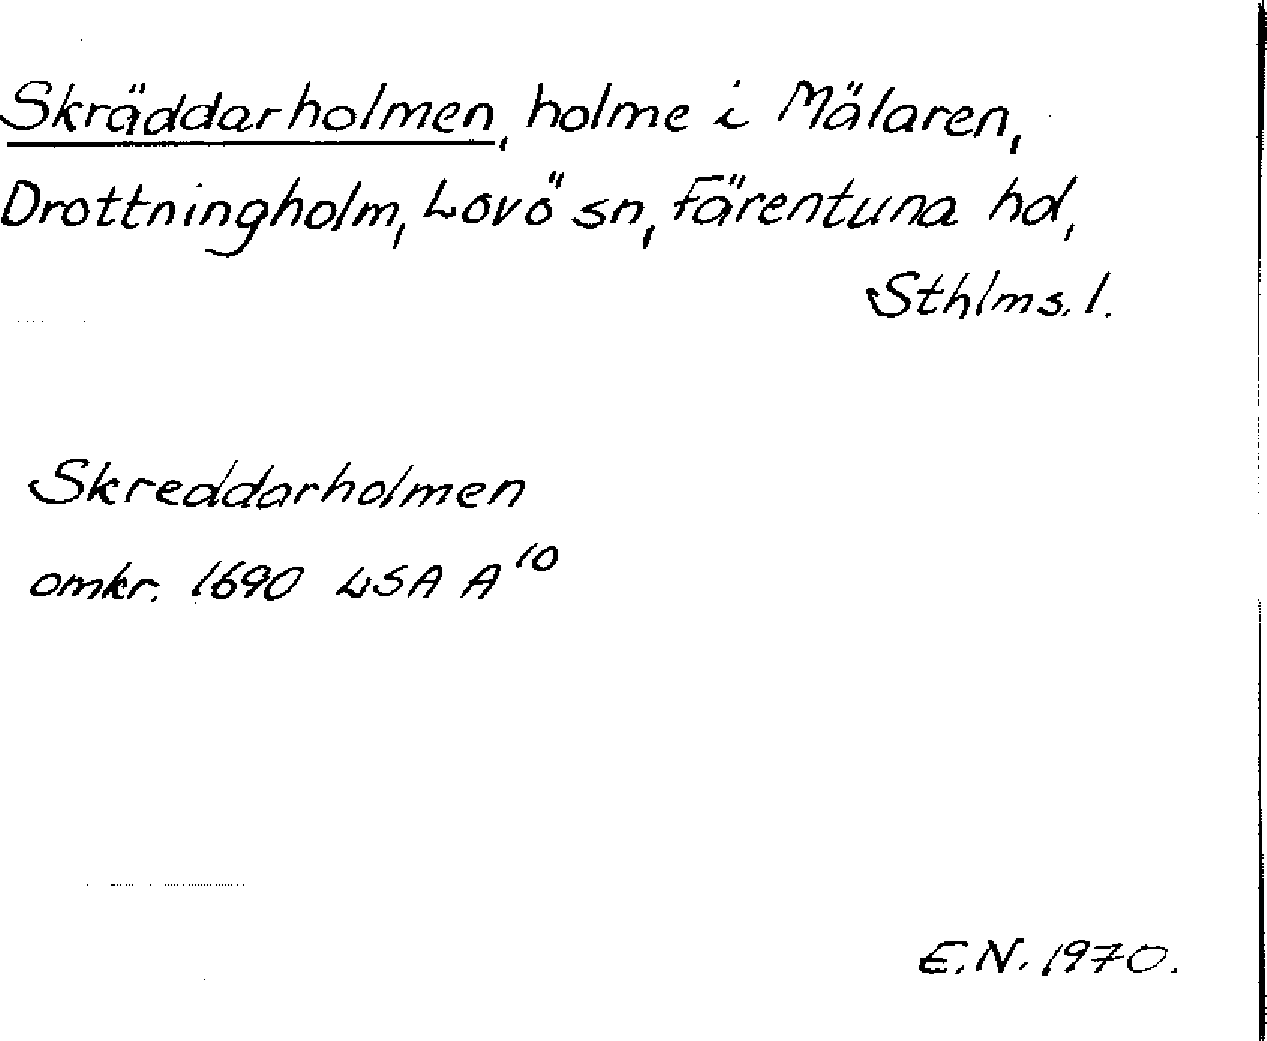 Skräddarholmen, holme i Mälaren,
Drottningholm, Lovö sn, Färentuna hd,
Sthlms. l.
Skreddarholmen
omkr. 1690 LSA A 10
E.N. 1970.